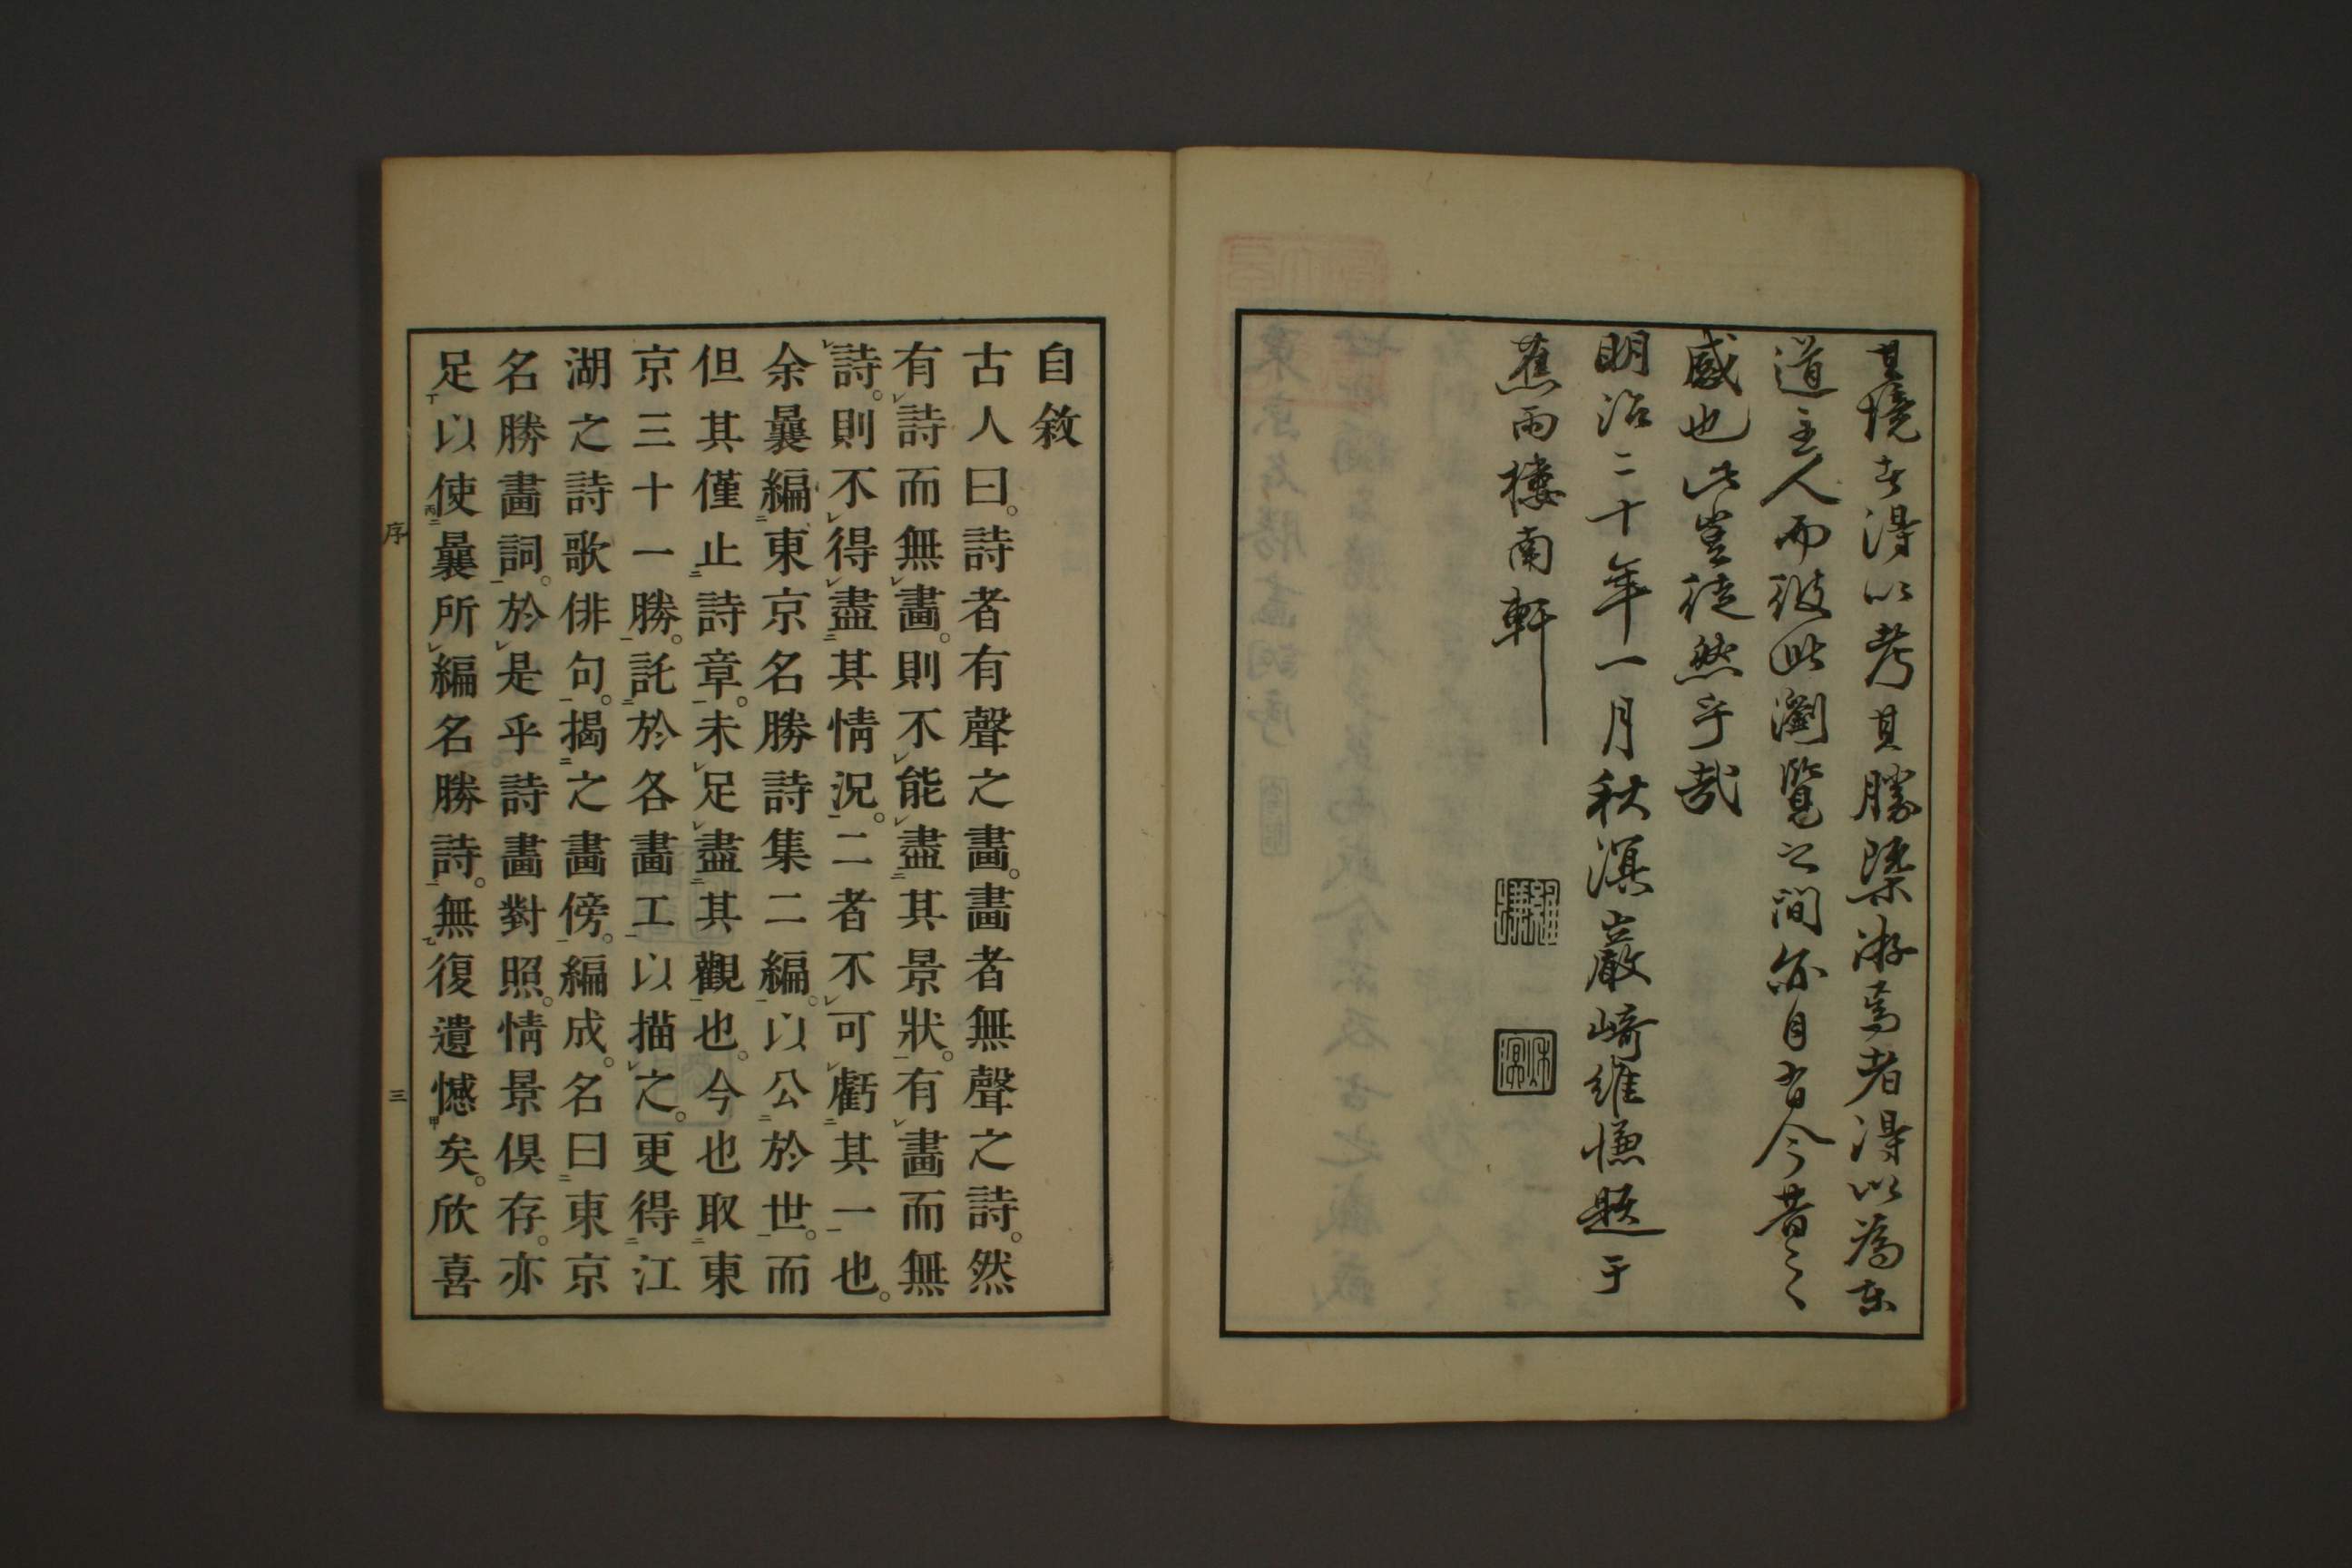 其境者得以考其勝槩游焉者得以為東
道主人而彼此瀏覽之間亦自有今昔之
感也此豈徒然乎哉
明治二十年一月秋溟巖崎維慊題于
蕉雨樓南軒
自敘
古人曰。詩者有聲之畫。畫者無聲之詩。然
有詩而無畫。則不能盡其景狀。有畫而無
詩。則不得盡其情況。二者不可虧其一也。
余曩編東京名勝詩集二編。以公於世。而
但其僅止詩章。未足盡其觀也。今也取東
京三十一勝。託於各畫工以描之。更得江
湖之詩歌俳句。揭之畫傍。編成。名曰東京
名勝畫詞。於是乎詩畫對照。情景俱存。亦
足以使曩所編名勝詩。無復遺憾矣。欣喜
序
三